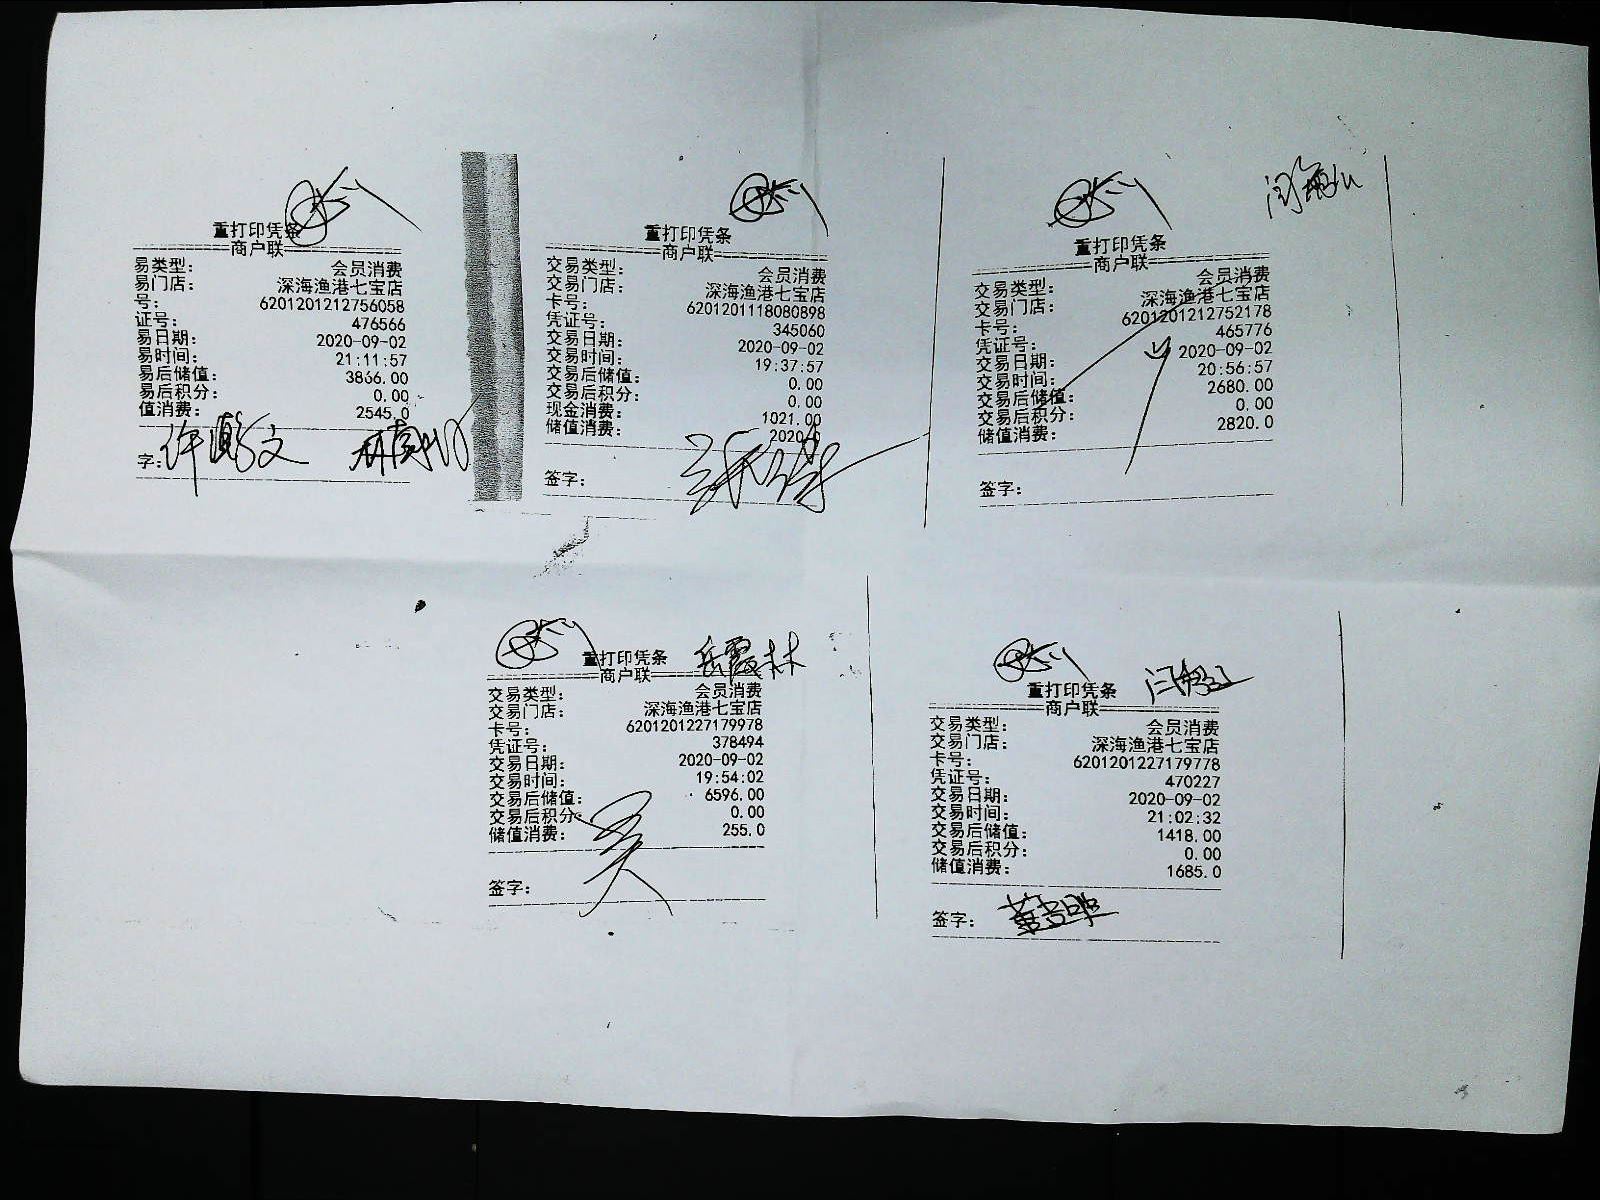 重打印凭条
商户联
易类型： 会员消费
易门店： 深海渔港七宝店
号： 6201201212756058
证号： 476566
易日期： 2020-09-02
易时间： 21:11:57
易后储值： 3866.00
易后积分： 0.00
值消费： 2545.0
字：
重打印凭条
商户联
交易类型： 会员消费
交易门店： 深海渔港七宝店
卡号： 6201201118080898
凭证号： 345060
交易日期： 2020-09-02
交易时间： 19:37:57
交易后储值： 0.00
交易后积分： 0.00
现金消费： 1021.00
储值消费： 2020.0
签字：
重打印凭条
商户联
交易类型： 会员消费
交易门店： 深海渔港七宝店
卡号： 6201201212752178
凭证号： 465776
交易日期： 2020-09-02
交易时间： 20:56:57
交易后储值： 2680.00
交易后积分： 0.00
储值消费： 2820.0
签字：
重打印凭条
商户联
交易类型： 会员消费
交易门店： 深海渔港七宝店
卡号： 6201201227179978
凭证号： 378494
交易日期： 2020-09-02
交易时间： 19:54:02
交易后储值： 6596.00
交易后积分： 0.00
储值消费： 255.0
签字：
重打印凭条
商户联
交易类型： 会员消费
交易门店： 深海渔港七宝店
卡号： 6201201227179778
凭证号： 470227
交易日期： 2020-09-02
交易时间： 21:02:32
交易后储值： 1418.00
交易后积分： 0.00
储值消费： 1685.0
签字：